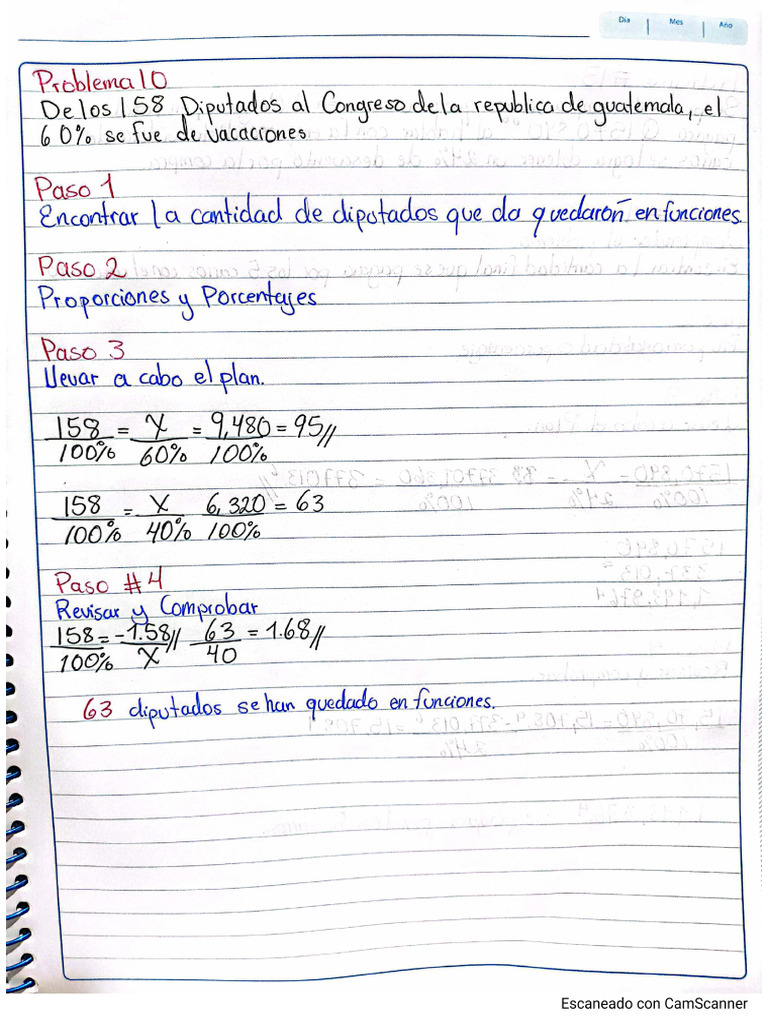 Dia Mes Año
Problema 10
De los 158 Diputados al Congreso de la republica de guatemala, el
60% se fue de vacaciones
Paso 1
Encontrar la cantidad de diputados que da quedaron en funciones.
Paso 2
Proporciones y Porcentajes
Paso 3
llevar a cabo el plan.
158 = X = 9,480 = 95//
100% 60% 100%
158 = X 6,320 = 63
100% 40% 100%
Paso #4
Revisar y Comprobar
158 = -1.58// 63 = 1.68//
100% X 40
63 diputados se han quedado en funciones.
Escaneado con CamScanner